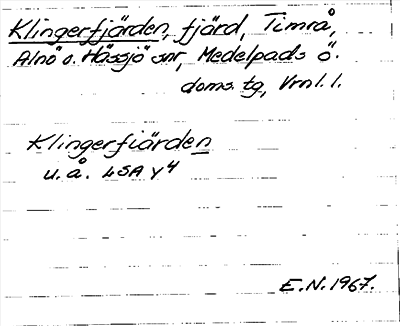 Klingerfjärden, fjärd, Timrå,
Alnö o. Hässjö snr, Medelpads ö.
doms. tg, Vrnl. l.
Klingerfiärden
u. å. LSA Y4
E.N. 1967.